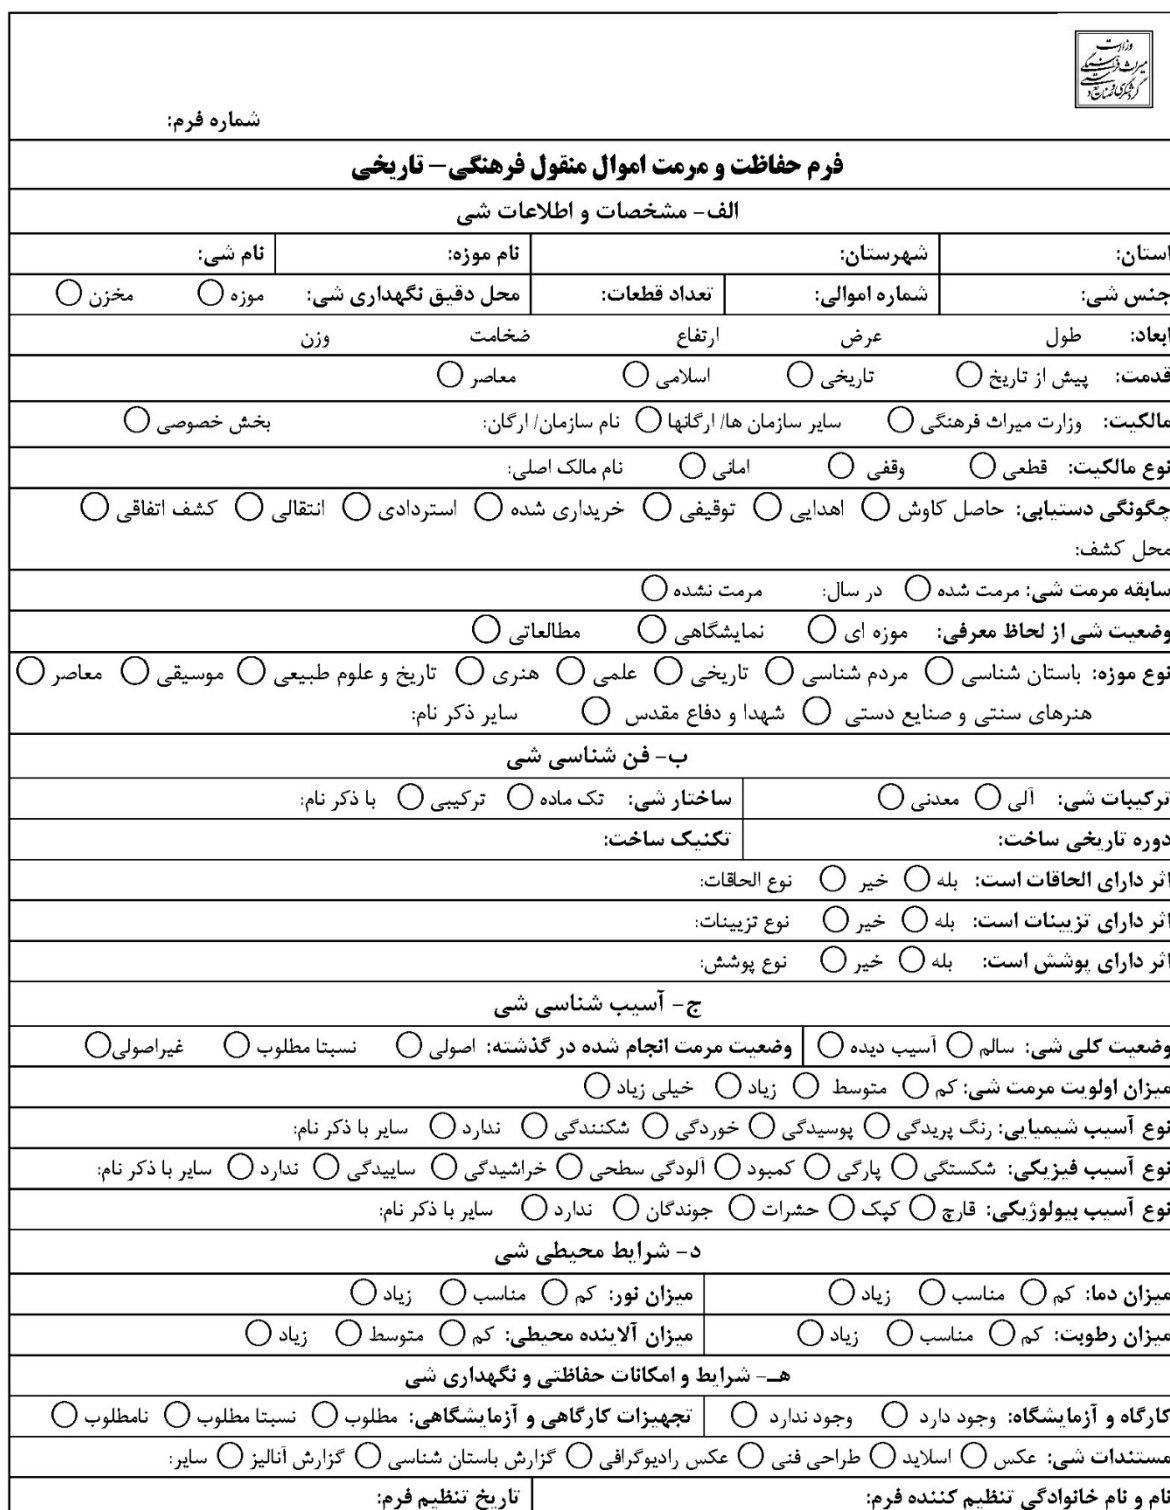 وزارت
میراث فرهنگی
گردشگری و صنایع دستی
شماره فرم:
فرم حفاظت و مرمت اموال منقول فرهنگی– تاریخی
الف- مشخصات و اطلاعات شی
استان: شهرستان: نام موزه: نام شی:
جنس شی: شماره اموالی: تعداد قطعات: محل دقیق نگهداری شی: موزه ○ مخزن ○
ابعاد: طول عرض ارتفاع ضخامت وزن
قدمت: پیش از تاریخ ○ تاریخی ○ اسلامی ○ معاصر ○
مالکیت: وزارت میراث فرهنگی ○ سایر سازمان ها/ ارگانها ○ نام سازمان/ ارگان: بخش خصوصی ○
نوع مالکیت: قطعی ○ وقفی ○ امانی ○ نام مالک اصلی:
چگونگی دستیابی: حاصل کاوش ○ اهدایی ○ توقیفی ○ خریداری شده ○ استردادی ○ انتقالی ○ کشف اتفاقی ○
محل کشف:
سابقه مرمت شی: مرمت شده ○ در سال: مرمت نشده ○
وضعیت شی از لحاظ معرفی: موزه ای ○ نمایشگاهی ○ مطالعاتی ○
نوع موزه: باستان شناسی ○ مردم شناسی ○ تاریخی ○ علمی ○ هنری ○ تاریخ و علوم طبیعی ○ موسیقی ○ معاصر ○
هنرهای سنتی و صنایع دستی ○ شهدا و دفاع مقدس ○ سایر ذکر نام:
ب- فن شناسی شی
ترکیبات شی: آلی ○ معدنی ○ ساختار شی: تک ماده ○ ترکیبی ○ با ذکر نام:
دوره تاریخی ساخت: تکنیک ساخت:
اثر دارای الحاقات است: بله ○ خیر ○ نوع الحاقات:
اثر دارای تزیینات است: بله ○ خیر ○ نوع تزیینات:
اثر دارای پوشش است: بله ○ خیر ○ نوع پوشش:
ج- آسیب شناسی شی
وضعیت کلی شی: سالم ○ آسیب دیده ○ وضعیت مرمت انجام شده در گذشته: اصولی ○ نسبتا مطلوب ○ غیراصولی ○
میزان اولویت مرمت شی: کم ○ متوسط ○ زیاد ○ خیلی زیاد ○
نوع آسیب شیمیایی: رنگ پریدگی ○ پوسیدگی ○ خوردگی ○ شکنندگی ○ ندارد ○ سایر با ذکر نام:
نوع آسیب فیزیکی: شکستگی ○ پارگی ○ کمبود ○ آلودگی سطحی ○ خراشیدگی ○ ساییدگی ○ ندارد ○ سایر با ذکر نام:
نوع آسیب بیولوژیکی: قارچ ○ کپک ○ حشرات ○ جوندگان ○ ندارد ○ سایر با ذکر نام:
د- شرایط محیطی شی
میزان دما: کم ○ مناسب ○ زیاد ○ میزان نور: کم ○ مناسب ○ زیاد ○
میزان رطوبت: کم ○ مناسب ○ زیاد ○ میزان آلاینده محیطی: کم ○ متوسط ○ زیاد ○
هـ- شرایط و امکانات حفاظتی و نگهداری شی
کارگاه و آزمایشگاه: وجود دارد ○ وجود ندارد ○ تجهیزات کارگاهی و آزمایشگاهی: مطلوب ○ نسبتا مطلوب ○ نامطلوب ○
مستندات شی: عکس ○ اسلاید ○ طراحی فنی ○ عکس رادیوگرافی ○ گزارش باستان شناسی ○ گزارش آنالیز ○ سایر:
نام و نام خانوادگی تنظیم کننده فرم: تاریخ تنظیم فرم: